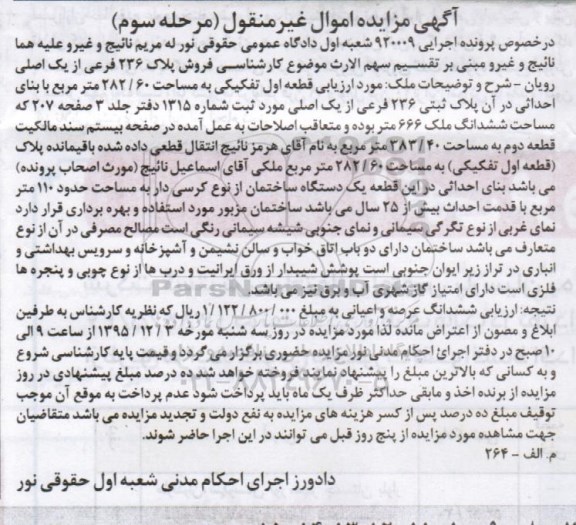 آگهی مزایده اموال غیرمنقول (مرحله سوم)
درخصوص پرونده اجرایی ۹۲۰۰۰۹ شعبه اول دادگاه عمومی حقوقی نور له مریم نائیج و غیرو علیه هما
نائیج و غیرو مبنی بر تقسیم سهم الارث موضوع کارشناسی فروش پلاک ۲۳۶ فرعی از یک اصلی
رویان - شرح و توضیحات ملک: مورد ارزیابی قطعه اول تفکیکی به مساحت ۲۸۲/۶۰ متر مربع با بنای
احداثی در آن پلاک ثبتی ۲۳۶ فرعی از یک اصلی مورد ثبت شماره ۱۳۱۵ دفتر جلد ۳ صفحه ۲۰۷ که
مساحت ششدانگ ملک ۶۶۶ متر بوده و متعاقب اصلاحات به عمل آمده در صفحه بیستم سند مالکیت
قطعه دوم به مساحت ۳۸۳/۴۰ متر مربع به نام آقای هرمز نائیج انتقال قطعی داده شده باقیمانده پلاک
(قطعه اول تفکیکی) به مساحت ۲۸۲/۶۰ متر مربع ملکی آقای اسماعیل نائیج (مورث اصحاب پرونده)
می باشد بنای احداثی در این قطعه یک دستگاه ساختمان از نوع کرسی دار به مساحت حدود ۱۱۰ متر
مربع با قدمت احداث بیش از ۲۵ سال می باشد ساختمان مزبور مورد استفاده و بهره برداری قرار دارد
نمای غربی از نوع تگرگی سیمانی و نمای جنوبی شیشه سیمانی رنگی است مصالح مصرفی در آن از نوع
متعارف می باشد ساختمان دارای دو باب اتاق خواب و سالن نشیمن و آشپزخانه و سرویس بهداشتی و
انباری در تراز زیر ایوان جنوبی است پوشش شیبدار از ورق ایرانیت و درب ها از نوع چوبی و پنجره ها
فلزی است دارای امتیاز گاز شهری آب و برق نیز می باشد
نتیجه: ارزیابی ششدانگ عرصه و اعیانی به مبلغ ۱/۱۲۲/۸۰۰/۰۰۰ ریال که نظریه کارشناس به طرفین
ابلاغ و مصون از اعتراض مانده لذا مورد مزایده در روز سه شنبه مورخه ۱۳۹۵/۱۲/۳ از ساعت ۹ الی
۱۰ صبح در دفتر اجرای احکام مدنی نور مزایده حضوری برگزار می گردد و قیمت پایه کارشناسی شروع
و به کسانی که بالاترین مبلغ را پیشنهاد نمایند فروخته خواهد شد ده درصد مبلغ پیشنهادی در روز
مزایده از برنده اخذ و مابقی حداکثر ظرف یک ماه باید پرداخت شود عدم پرداخت به موقع آن موجب
توقیف مبلغ ده درصد پس از کسر هزینه های مزایده به نفع دولت و تجدید مزایده می باشد متقاضیان
جهت مشاهده مورد مزایده از پنج روز قبل می توانند در این اجرا حاضر شوند.
م. الف - ۲۶۴
دادورز اجرای احکام مدنی شعبه اول حقوقی نور